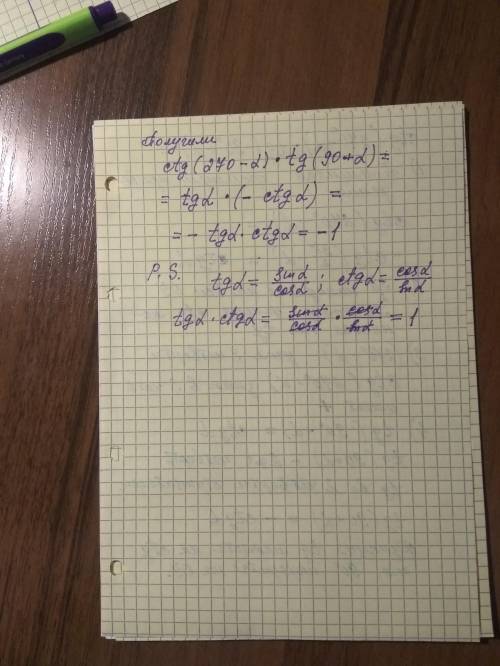 Получили
ctg(270-α)·tg(90+α)=
= tgα·(-ctgα) =
= - tgα·ctgα = -1
P.S. tgα = sinα/cosα; ctgα = cosα/sinα
tgα·ctgα = sinα/cosα · cosα/sinα = 1